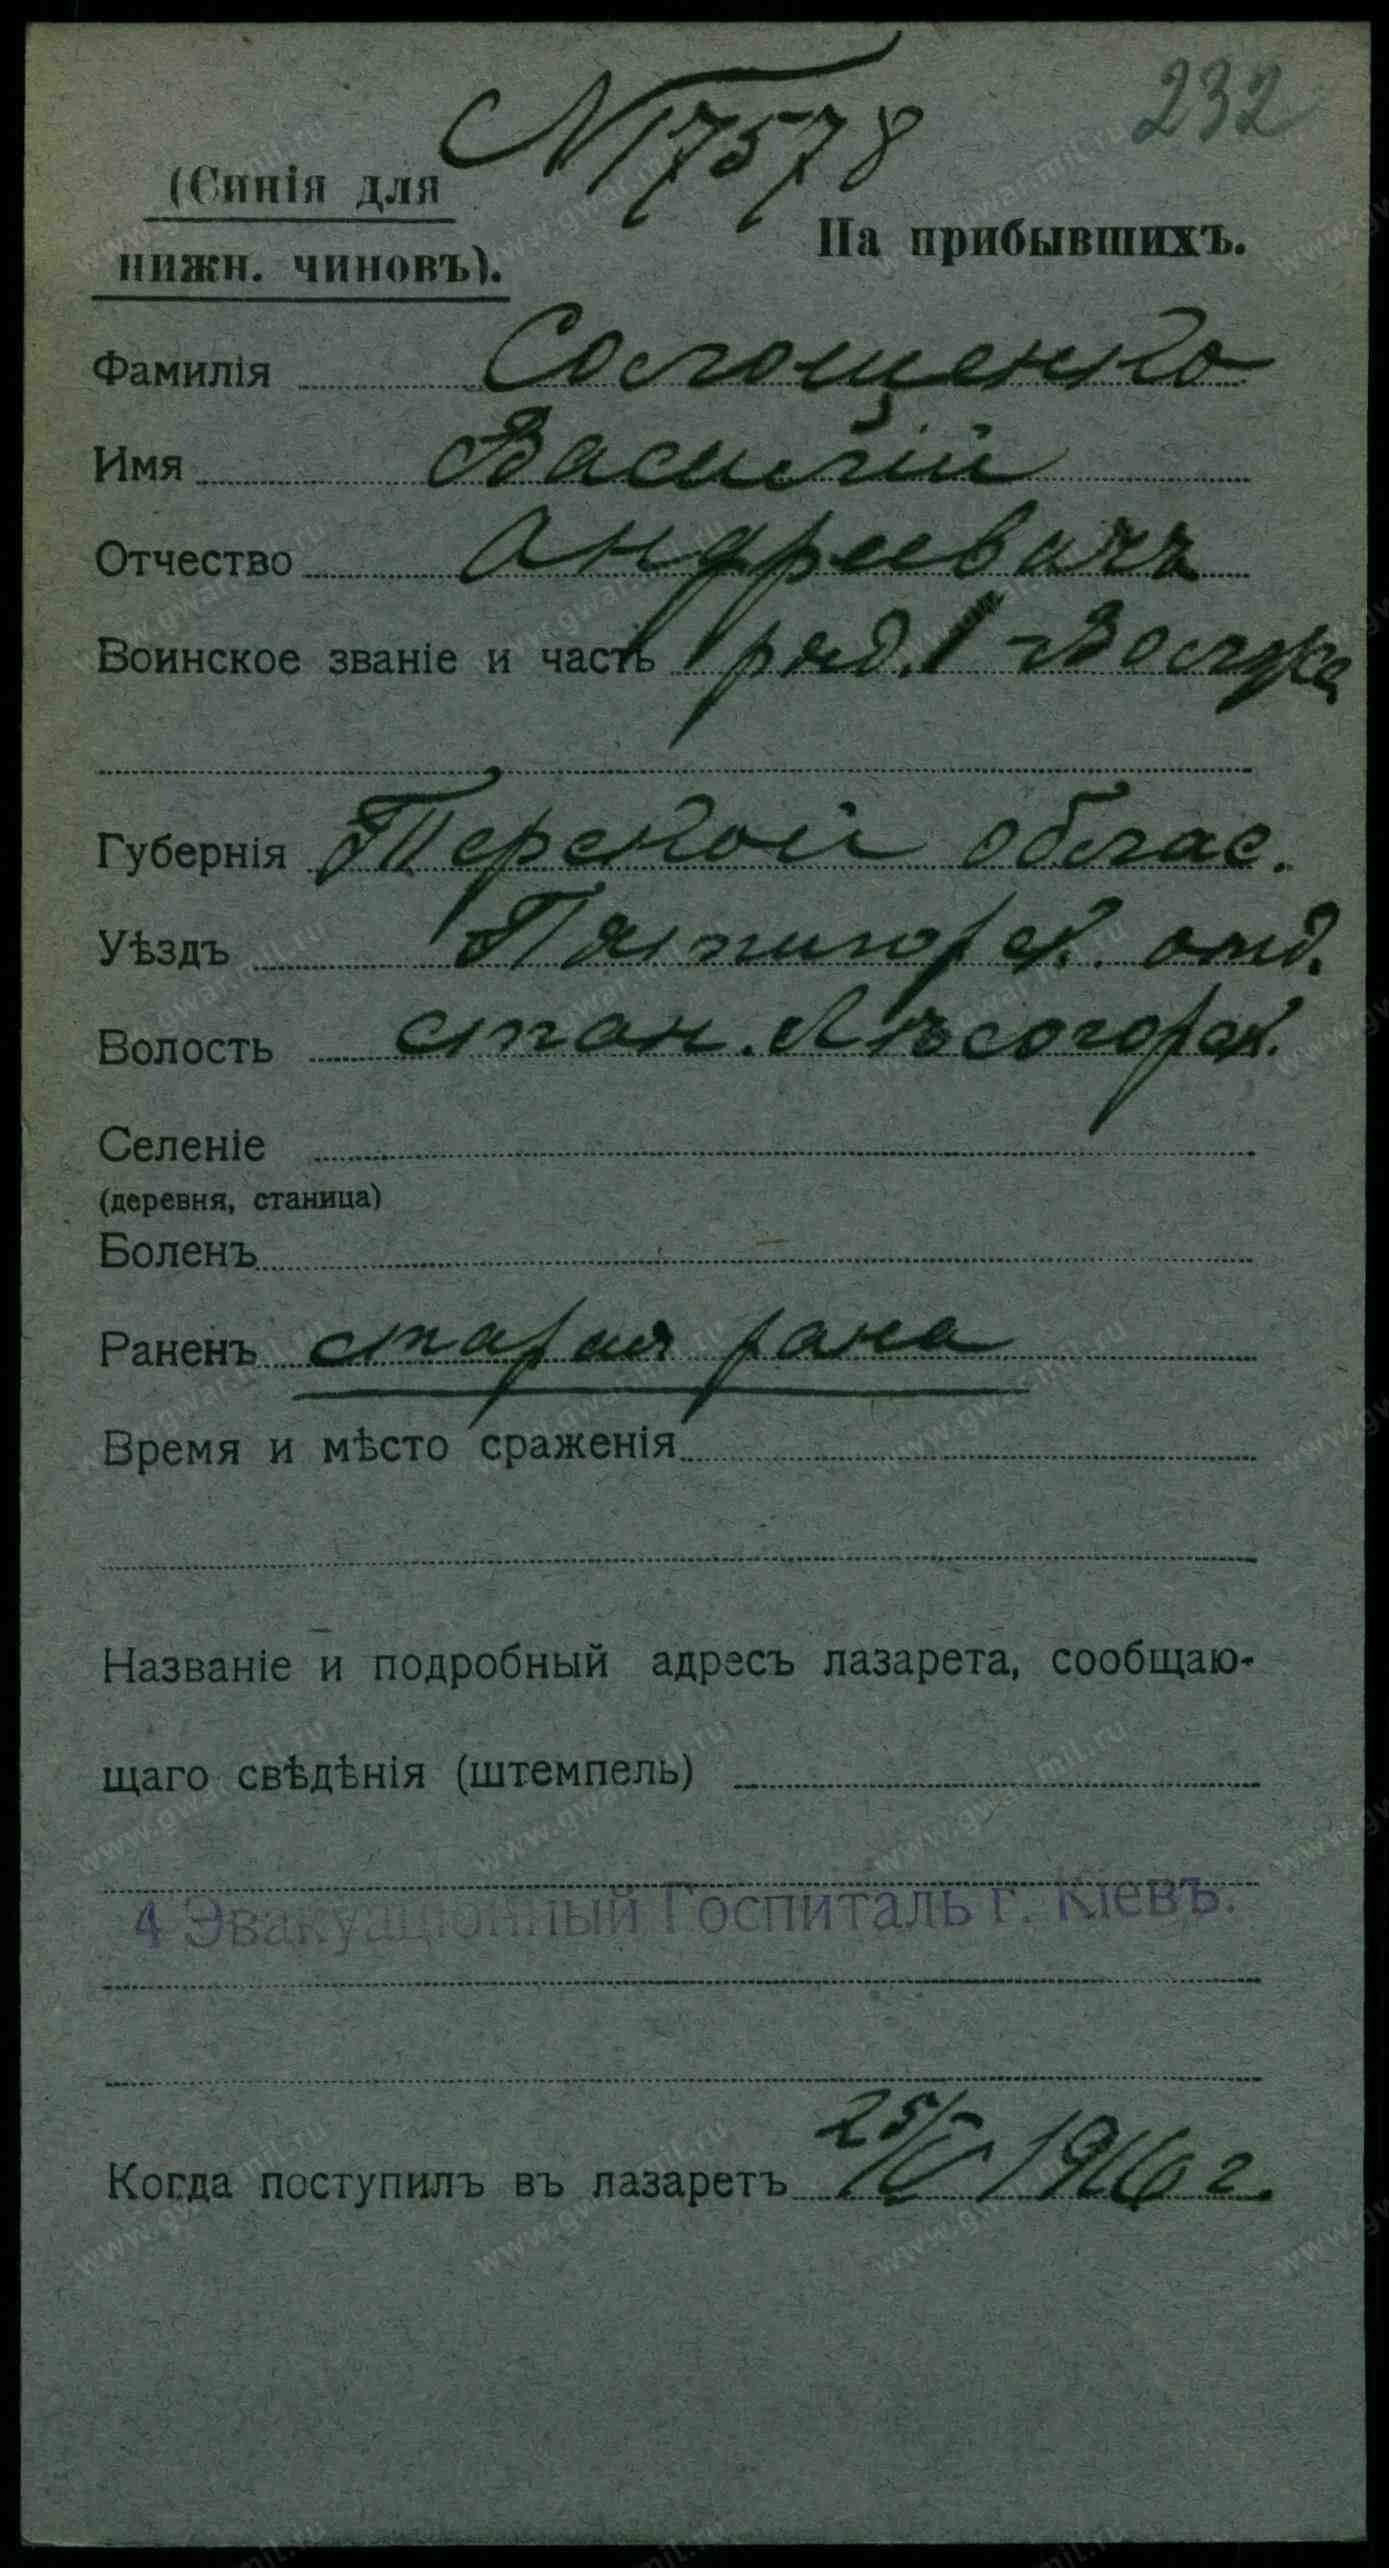 № 17578
232
(Синія для
нижн. чиновъ).
На прибывшихъ.
Фамилія Солощенко
Имя Василій
Отчество Андреевичъ
Воинское званіе и часть ряд. 1
Губернія Терской облас.
Уѣздъ Пятигорск. отд.
Волость стан. Лѣсогорск.
Селеніе
(деревня, станица)
Боленъ
Раненъ старая рана
Время и мѣсто сраженія
Названіе и подробный адресъ лазарета, сообщаю-
щаго свѣдѣнія (штемпель)
4 Эвакуаціонный Госпиталь г. Кіевъ.
Когда поступилъ въ лазаретъ 25/V 1916 г.